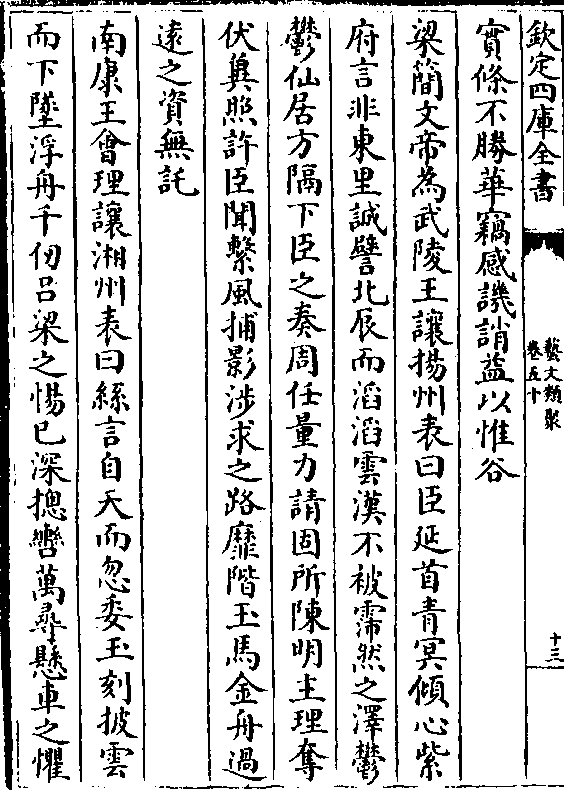 欽定四庫全書
藝文類聚
卷五十
十三
實條不勝華竊感譏誚益以惟谷
梁簡文帝為武陵王讓揚州表曰臣延首青冥傾心紫
府言非東里誠譬北辰而滔滔雲漢不被霈然之澤鬱
鬱仙居方隔下臣之奏周任量力請固所陳明主理奪
伏冀照許臣聞繫風捕影涉求之路靡階玉馬金舟過
逺之資無託
南康王會理讓湘州表曰絲言自天而忽委玉刻披雲
而下墜浮舟千仞吕梁之惕已深摠轡萬尋懸車之懼